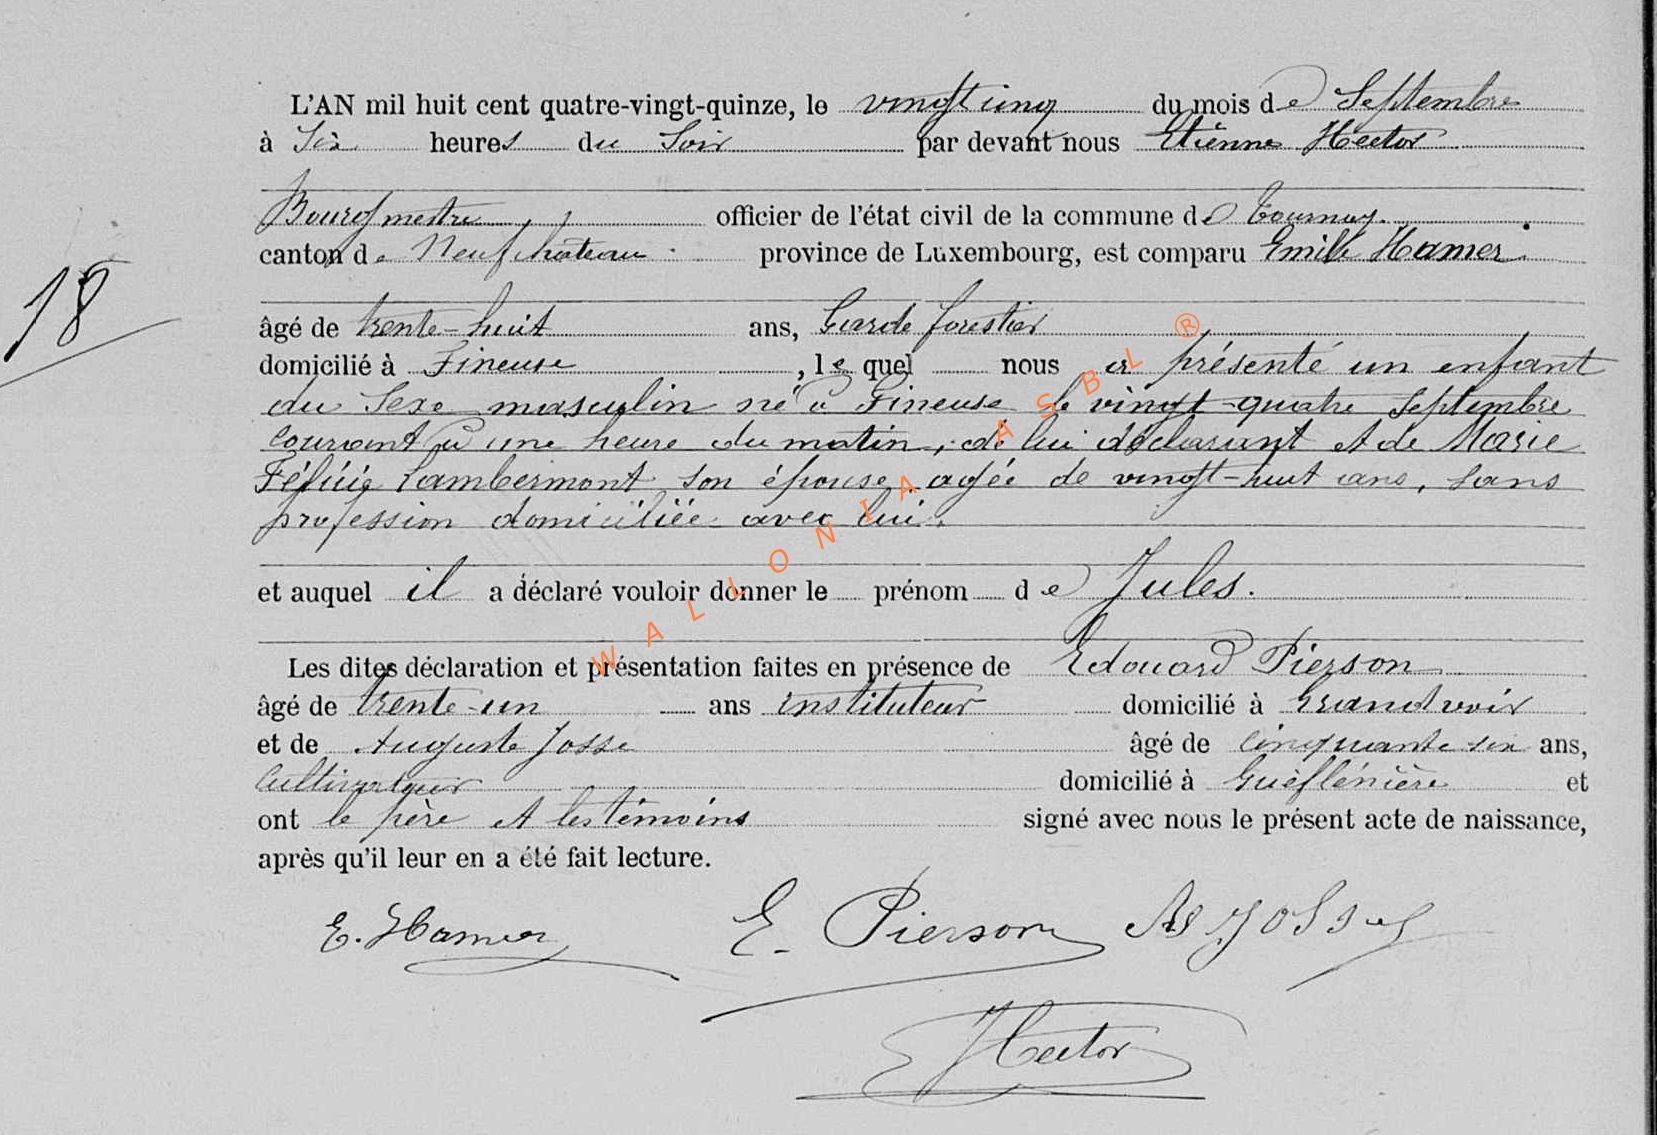 L'AN mil huit cent quatre-vingt-quinze, le vingt cinq du mois de Septembre
à Six heures du Soir par devant nous Etienne Hector
Bourgmestre, officier de l'état civil de la commune de Tournay.
canton de Neufchâteau province de Luxembourg, est comparu Emile Hamer.
18
âgé de trente-huit ans, Garde forestier,
domicilié à Fineuse, lequel nous a présenté un enfant
du Sexe masculin né à Fineuse le vingt-quatre Septembre
courant à une heure du matin, de lui déclarant et de Marie
Félicie Lambermont son épouse agée de vingt-huit ans, sans
profession domiciliée avec lui.
et auquel il a déclaré vouloir donner le prénom de Jules.
Les dites déclaration et présentation faites en présence de Edouard Pierson
âgé de trente-un ans instituteur domicilié à Grandvoir
et de Auguste Josse âgé de cinquante six ans,
Cultivateur domicilié à et
ont le père et les témoins signé avec nous le présent acte de naissance,
après qu'il leur en a été fait lecture.
E. Hamer E. Pierson As Josse
Hector
WALLONIA ASBL ®